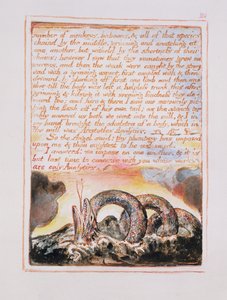 number of monkeys, baboons, & all of that species
chaind by the middle, grinning and snatching at
one another, but witheld by the shortness of their
chains: however I saw that they sometimes grew nu-
merous, and then the weak were caught by the strong
and with a grinning aspect, first coupled with & then
devourd, by plucking off first one limb and then ano-
ther till the body was left a helpless trunk. this after
grinning & kissing it with seeming fondness they de-
vourd too; and here & there I saw one savourily pic-
king the flesh off of his own tail; as the stench ter-
ribly annoyd us both we went into the mill, & I in
my hand brought the skeleton of a body, which in
the mill was Aristotles Analytics.
So the Angel said: thy phantasy has imposed
upon me & thou oughtest to be ashamed.
I answerd: we impose on one another, & it is
but lost time to converse with you whose works
are only Analytics.